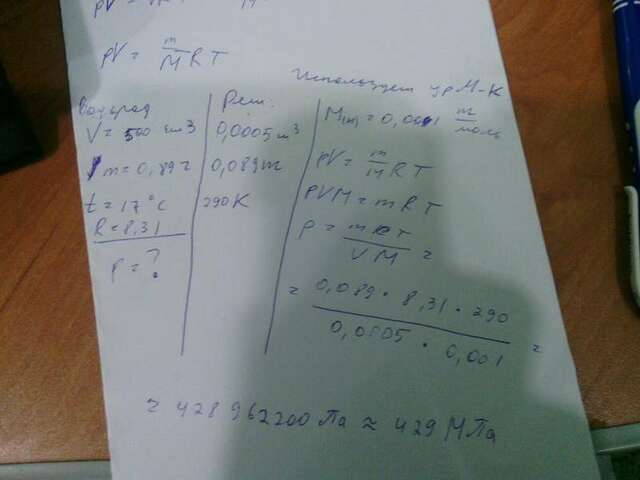 pV =
pV = m/M RT
Используем ур М-К
Водород
V = 500 см3
m = 0,89г
t = 17°C
R = 8,31
p = ?
Реш.
0,0005 м3
0,089m
290K
M(H) = 0,001 m/моль
pV = m/M RT
PVM = mRT
p = mRT/VM =
= 0,089 · 8,31 · 290 / 0,0005 · 0,001 =
= 428 962200 Па ≈ 429 МПа